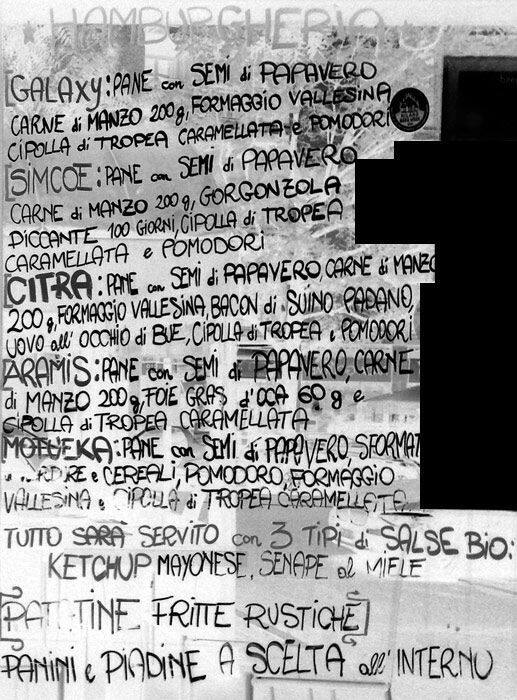 HAMBURGHERIO
[GALAXY: PANE con SEMI di PAPAVERO
CARNE di MANZO 200g, FORMAGGIO VALLESINA
CIPOLLA di TROPEA CARAMELLATA e POMODORI
[SIMCOE: PANE con SEMI di PAPAVERO
CARNE di MANZO 200g, GORGONZOLA
PICCANTE 100 GIORNI, CIPOLLA di TROPEA
CARAMELLATA e POMODORI
[CITRA: PANE con SEMI di PAPAVERO, CARNE di MANZO
200g, FORMAGGIO VALLESINA, BACON di SUINO PADANO,
UOVO all' OCCHIO di BUE, CIPOLLA di TROPEA e POMODORI
[ARAMIS: PANE con SEMI di PAPAVERO, CARNE
di MANZO 200g, FOIE GRAS d'OCA 60g e
CIPOLLA di TROPEA CARAMELLATA
MOTUEKA: PANE con SEMI di PAPAVERO, SFORMAT
e CEREALI, POMODORO, FORMAGGIO
VALLESINA e CIPOLLA di TROPEA CARAMELLATA
TUTTO SARÀ SERVITO con 3 TIPI di SALSE BIO:
KETCHUP MAYONESE, SENAPE al MIELE
[PATATINE FRITTE RUSTICHE]
PANINI e PIADINE A SCELTA all' INTERNO